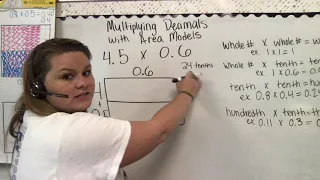 Multiplying Decimals
with Area Models
4.5 x 0.6
0.6
24 tenths
whole # x whole # = wh
ex. 1 x 1 = 1
whole # x tenth = ten
ex. 1 x 0.6 = 0.
tenth x tenth =
ex. 0.8 x 0.4 = 0.
hundredth x tenth = th
ex. 0.11 x 0.3 = 0